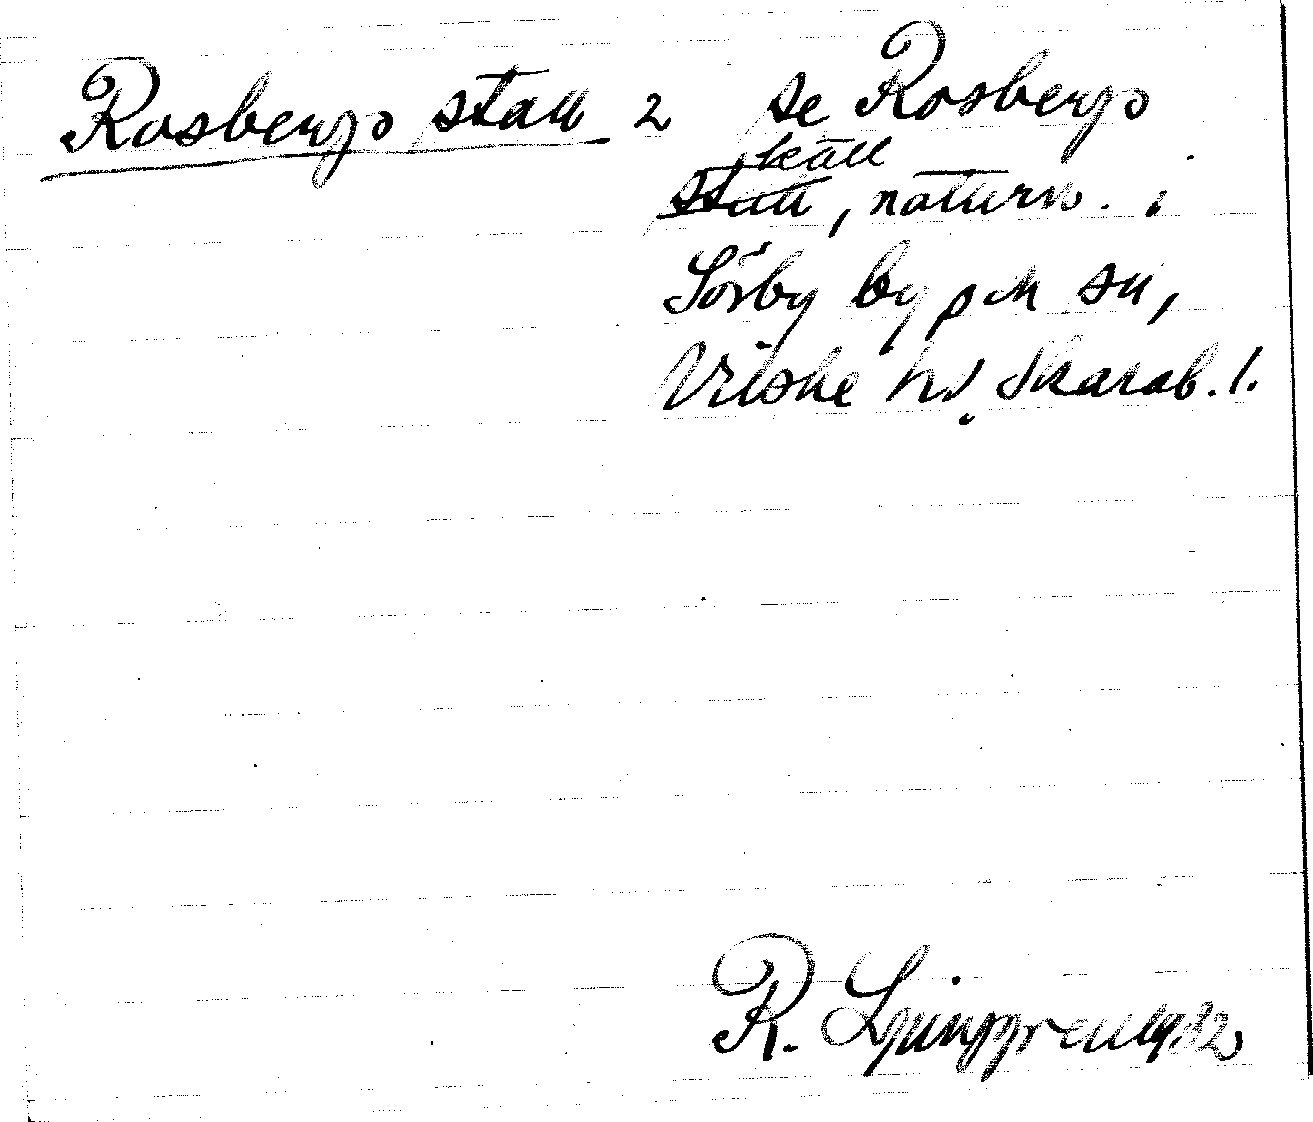 Rosbergs stall 2 se Rosbergs
käll
stall, naturn. i
Sörby by o sn,
Vilske hd. Skarab. l.
R. Ljunggren 1932